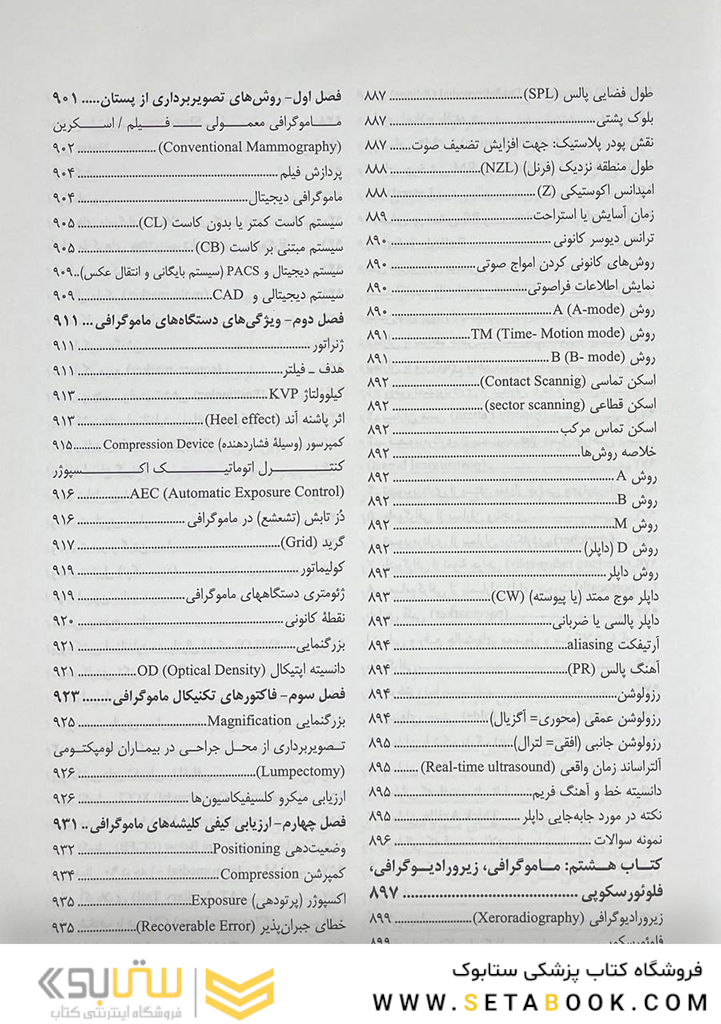 طول فضایی پالس (SPL)................ ۸۸۷
بلوک پشتی................ ۸۸۷
نقش پودر پلاستیک: جهت افزایش تضعیف صوت...... ۸۸۷
طول منطقه نزدیک (فرنل) (NZL)................ ۸۸۸
امپدانس اکوستیکی (Z)................ ۸۸۸
زمان آسایش یا استراحت................ ۸۸۹
ترانس دیوسر کانونی................ ۸۹۰
روش‌های کانونی کردن امواج صوتی................ ۸۹۰
نمایش اطلاعات فراصوتی................ ۸۹۰
روش A (A-mode)................ ۸۹۰
روش TM (Time- Motion mode)................ ۸۹۱
روش B (B- mode)................ ۸۹۱
اسکن تماسی (Contact Scannig)................ ۸۹۲
اسکن قطاعی (sector scanning)................ ۸۹۲
اسکن تماس مرکب................ ۸۹۲
خلاصه روش‌ها................ ۸۹۲
روش A................ ۸۹۲
روش B................ ۸۹۲
روش M................ ۸۹۲
روش D (داپلر)................ ۸۹۲
روش داپلر................ ۸۹۳
داپلر موج ممتد (یا پیوسته) (CW)................ ۸۹۳
داپلر پالسی یا ضربانی................ ۸۹۳
آرتیفکت aliasing................ ۸۹۴
آهنگ پالس (PR)................ ۸۹۴
رزولوشن................ ۸۹۴
رزولوشن عمقی (محوری= آگزیال)................ ۸۹۴
رزولوشن جانبی (افقی= لترال)................ ۸۹۵
آلتراساند زمان واقعی (Real-time ultrasound)...... ۸۹۵
دانسیته خط و آهنگ فریم................ ۸۹۵
نکته در مورد جابه‌جایی داپلر................ ۸۹۵
نمونه سوالات................ ۸۹۶
کتاب هشتم: ماموگرافی، زیرورادیوگرافی،
فلوئورسکوپی................ ۸۹۷
زیرورادیوگرافی (Xeroradiography)................ ۸۹۹
فصل اول- روش‌های تصویربرداری از پستان..... ۹۰۱
ماموگرافی معمولی ــ فیلم / اسکرین
(Conventional Mammography)................ ۹۰۲
پردازش فیلم................ ۹۰۴
ماموگرافی دیجیتال................ ۹۰۴
سیستم کاست کمتر یا بدون کاست (CL)................ ۹۰۵
سیستم مبتنی بر کاست (CB)................ ۹۰۵
سیستم دیجیتال و PACS (سیستم بایگانی و انتقال عکس)..۹۰۹
سیستم دیجیتالی و CAD................ ۹۰۹
فصل دوم- ویژگی‌های دستگاه‌های ماموگرافی... ۹۱۱
ژنراتور................ ۹۱۱
هدف ـ فیلتر................ ۹۱۱
کیلوولتاژ KVP................ ۹۱۳
اثر پاشنه آند (Heel effect)................ ۹۱۳
کمپرسور (وسیلهٔ فشاردهنده) Compression Device.........۹۱۵
کنترل اتوماتیک اکسپوژر
AEC (Automatic Exposure Control)................ ۹۱۶
دُز تابش (تشعشع) در ماموگرافی................ ۹۱۶
گرید (Grid)................ ۹۱۷
کولیماتور................ ۹۱۹
ژئومتری دستگاههای ماموگرافی................ ۹۱۹
نقطهٔ کانونی................ ۹۲۰
بزرگنمایی................ ۹۲۱
دانسیته اپتیکال OD (Optical Density)................ ۹۲۱
فصل سوم- فاکتورهای تکنیکال ماموگرافی....... ۹۲۳
بزرگنمایی Magnification................ ۹۲۵
تصویربرداری از محل جراحی در بیماران لومپکتومی
(Lumpectomy)................ ۹۲۶
ارزیابی میکرو کلسیفیکاسیون‌ها................ ۹۲۶
فصل چهارم- ارزیابی کیفی کلیشه‌های ماموگرافی.. ۹۳۱
وضعیت‌دهی Positioning................ ۹۳۲
کمپرشن Compression................ ۹۳۴
اکسپوژر (پرتودهی) Exposure................ ۹۳۵
خطای جبران‌پذیر (Recoverable Error)................ ۹۳۵
فروشگاه کتاب پزشکی ستابوک
WWW.SETABOOK.COM
ستابوک
فروشگاه اینترنتی کتاب